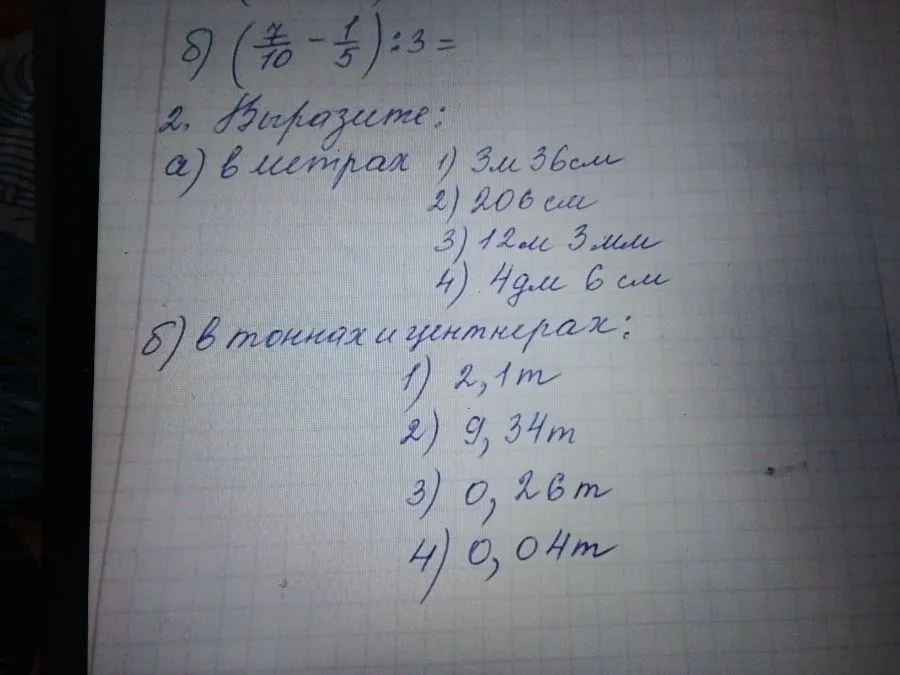 б) (7/10 - 1/5) : 3 =
2. Выразите:
а) в метрах 1) 3м 36см
2) 206 см
3) 12м 3мм
4) 4дм 6 см
б) в тоннах и центнерах:
1) 2,1т
2) 9,34т
3) 0,26т
4) 0,04т